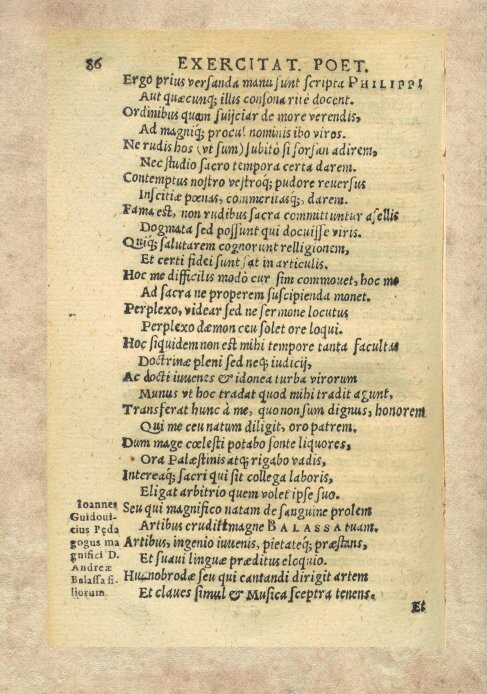 86 EXERCITAT. POET.
Ergo prius versanda manu sunt scripta PHILIPPI
Aut quæcunq; illis consona ritè docent.
Ordinibus quam suijciar de more verendis,
Ad magniq́; procul nominis ibo viros.
Ne rudis hos (vt sum) subitò si forsan adirem,
Nec studio sacro tempora certa darem.
Contemptus nostro vestroq́; pudore reuersus
Inscitiæ pœnas, commeritasq;, darem.
Fama est, non rudibus sacra committuntur asellis
Dogmata sed possunt qui docuisse viris.
Quiq́; salutarem cognorunt relligionem,
Et certi fidei sunt sat in articulis.
Hoc me difficilis modò cur sim commouet, hoc me
Ad sacra ne properem suscipienda monet.
Perplexo, videar sed ne sermone locutus
Perplexo dæmon ceu solet ore loqui.
Hoc siquidem non est mihi tempore tanta facultas
Doctrinæ pleni sed neq; iudicij,
Ac docti iuuenes & idonea turba virorum
Munus vt hoc tradat quod mihi tradit agunt,
Transferat hunc à me, quo non sum dignus, honorem
Qui me ceu natum diligit, oro patrem.
Dum mage cœlesti potabo fonte liquores,
Ora Palæstinis atq; rigabo vadis,
Intereaq; sacri qui sit collega laboris,
Eligat arbitrio quem volet ipse suo.
Seu qui magnifico natam de sanguine prolem
Artibus erudit magne BALASSA tuam.
Artibus, ingenio iuuenis, pietateq; præstans,
Et suaui linguæ præditus eloquio.
Hunnobrodæ seu qui cantandi dirigit artem
Et claues simul & Musica sceptra tenens.
Ioannes
Guidoui-
cius Pęda
gogus ma
gnifici D.
Andreæ
Balassa fi-
liorum.
Et